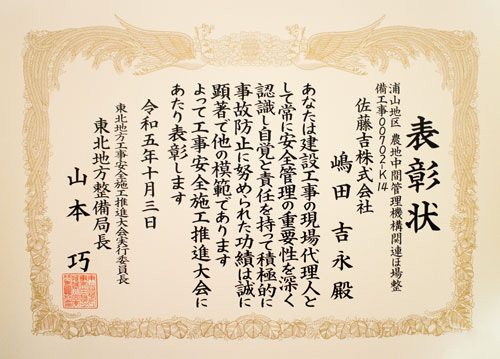 表彰状
浦山地区 農地中間管理機構関連ほ場整
備工事00702-K14
佐藤吉株式会社
嶋田吉永殿
あなたは建設工事の現場代理人と
して常に安全管理の重要性を深く
認識し自覚と責任を持って積極的に
事故防止に努められた功績は誠に
顕著で他の模範であります
よって工事安全施工推進大会に
あたり表彰します
令和五年十月三日
東北地方工事安全施工推進大会実行委員長
東北地方整備局長
山本巧